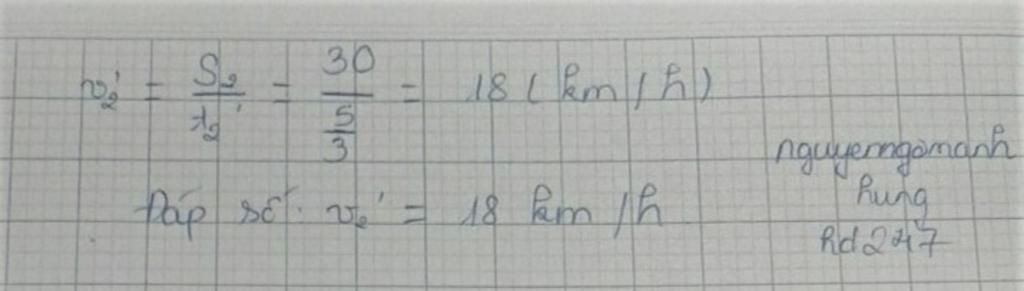 v₂' = S₂/t₂' = 30/(5/3) = 18 (km/h)
Đáp số: v₂' = 18 km/h
nguyenngomanh
hung
hd247